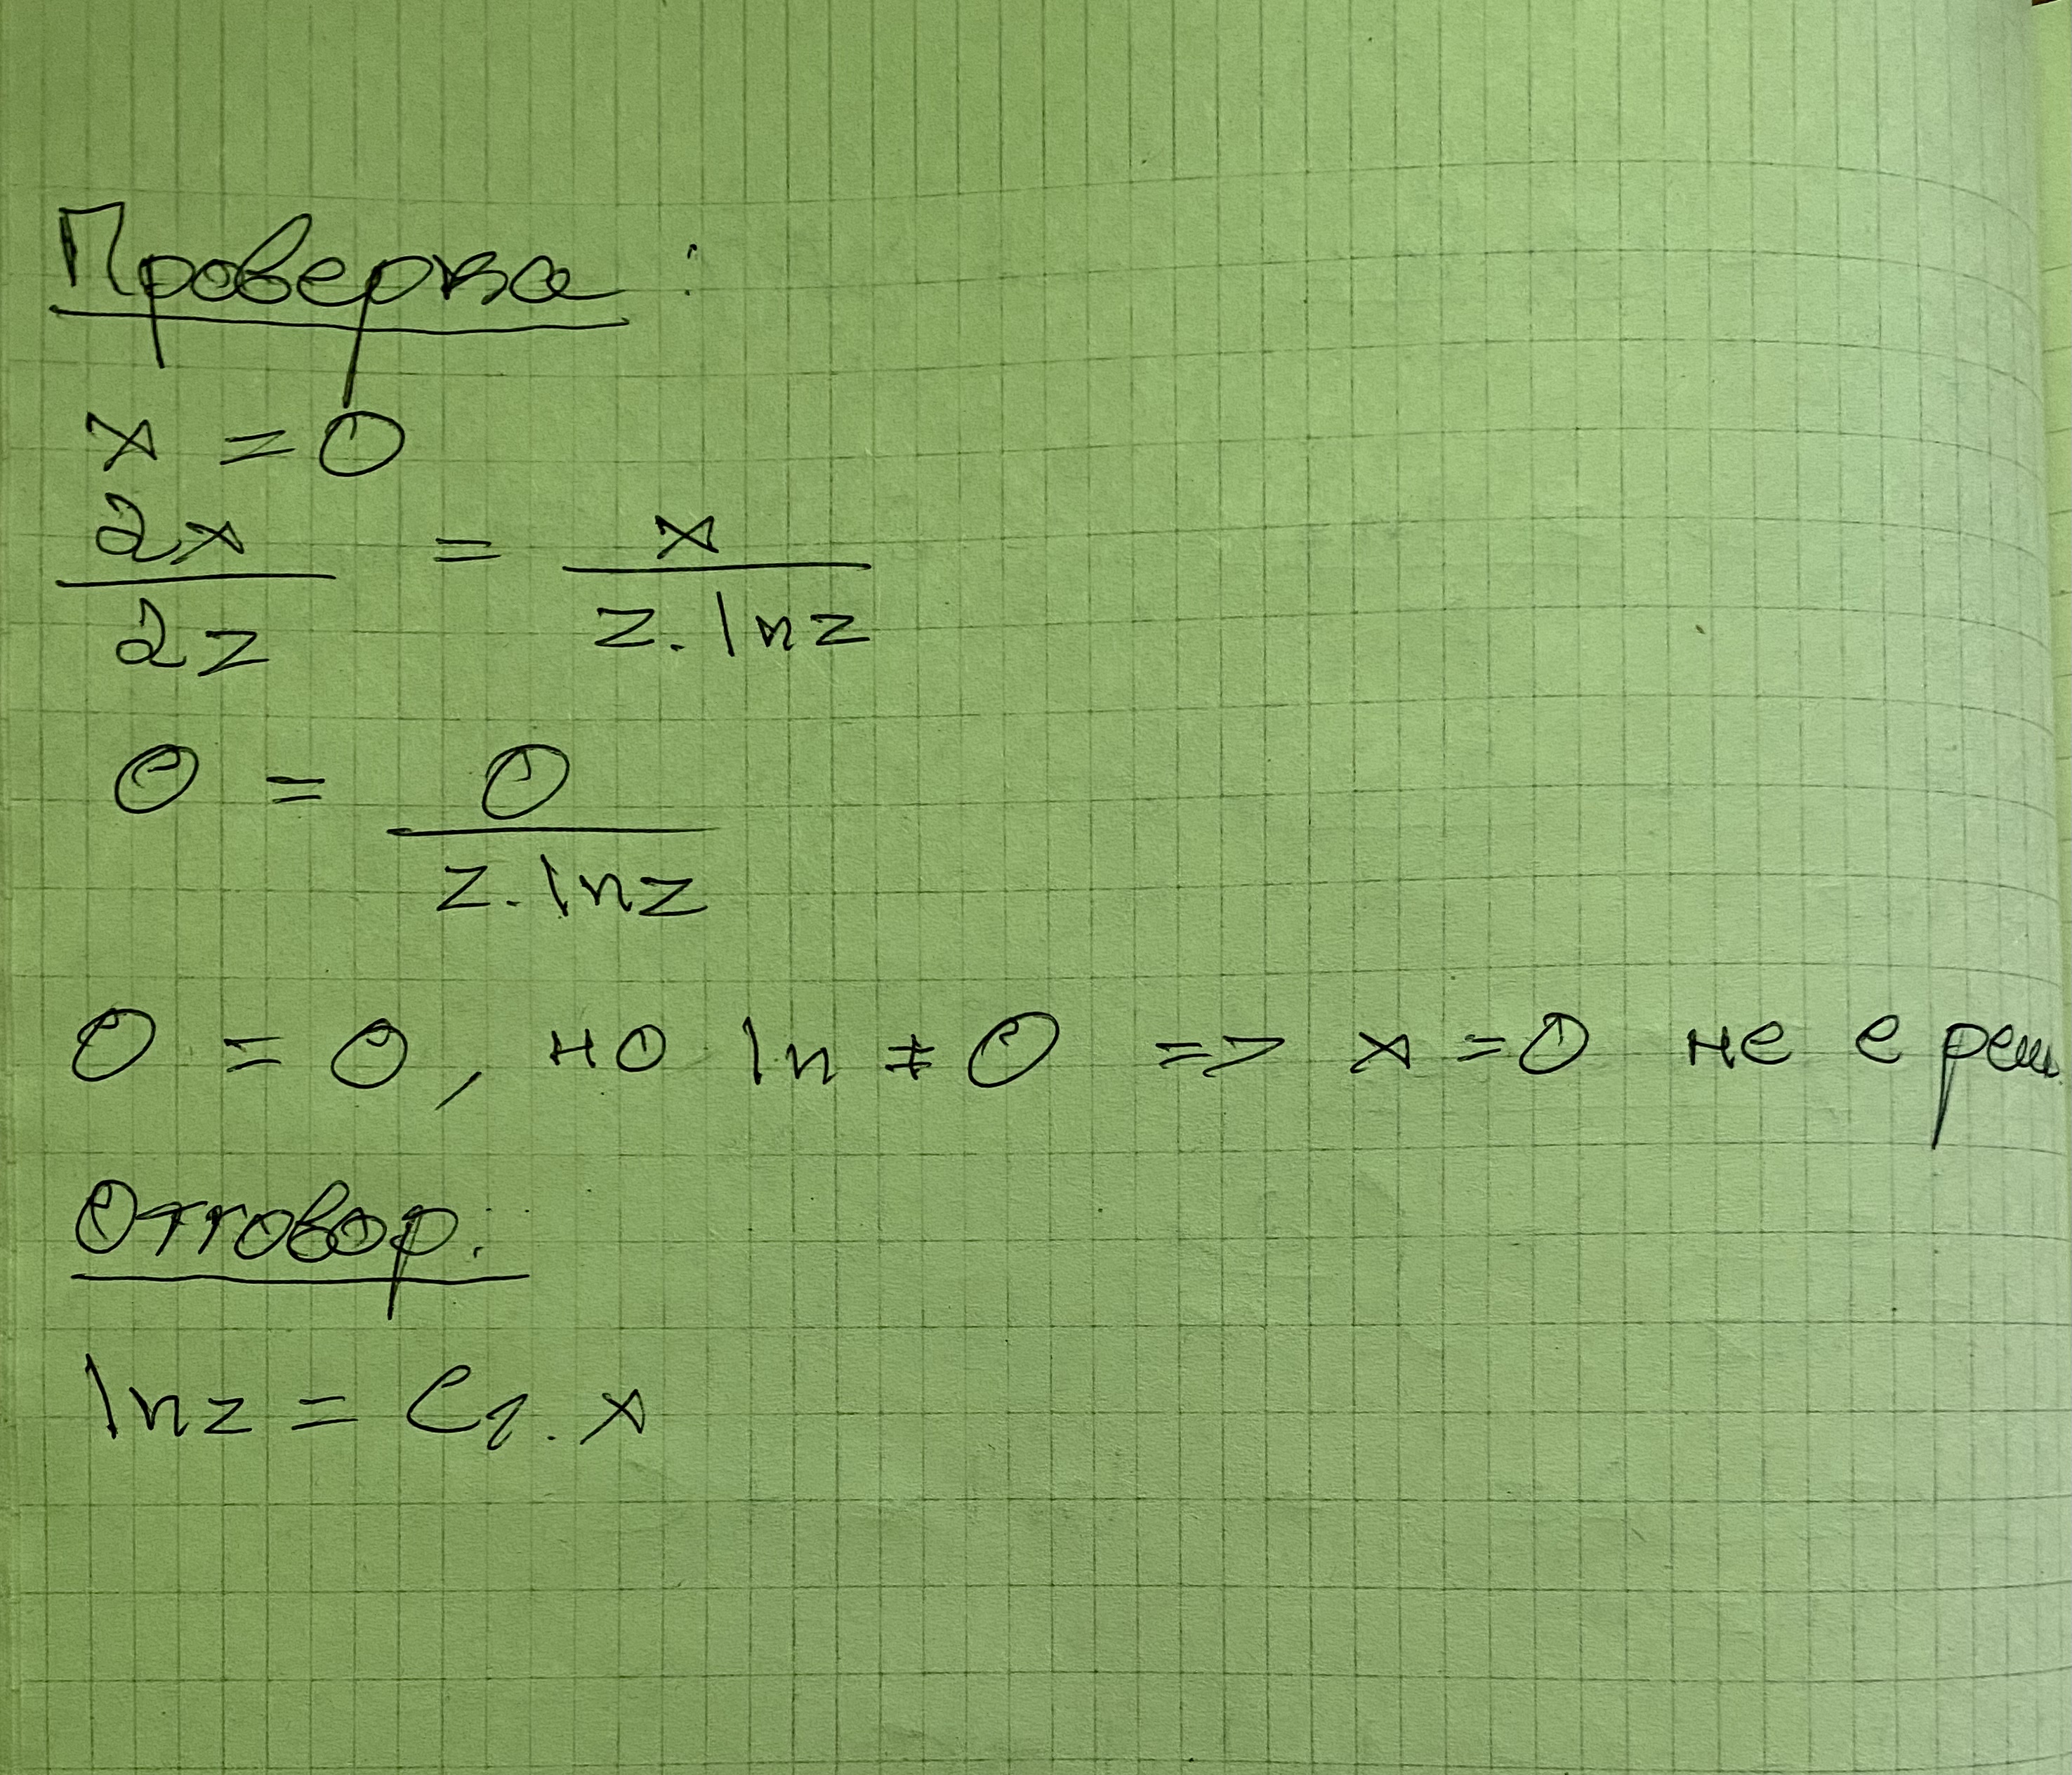 Проверка:
x = 0
dx/dz = x/z.lnz
0 = 0/z.lnz
0 = 0, но ln ≠ 0 => x = 0 не е реш.
Отговор:
lnz = C₁.x